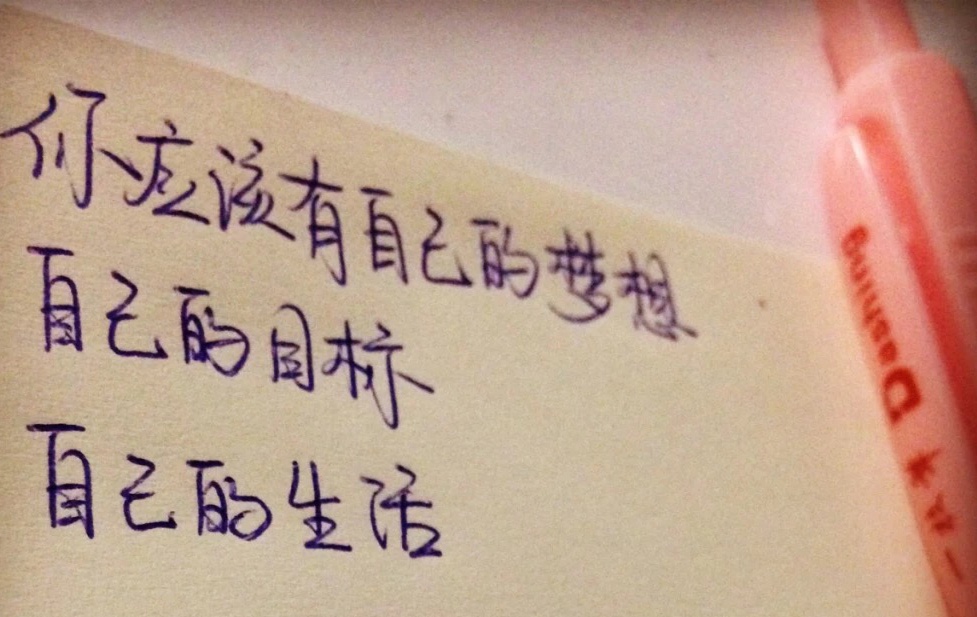 你应该有自己的梦想
自己的目标
自己的生活
Dashing